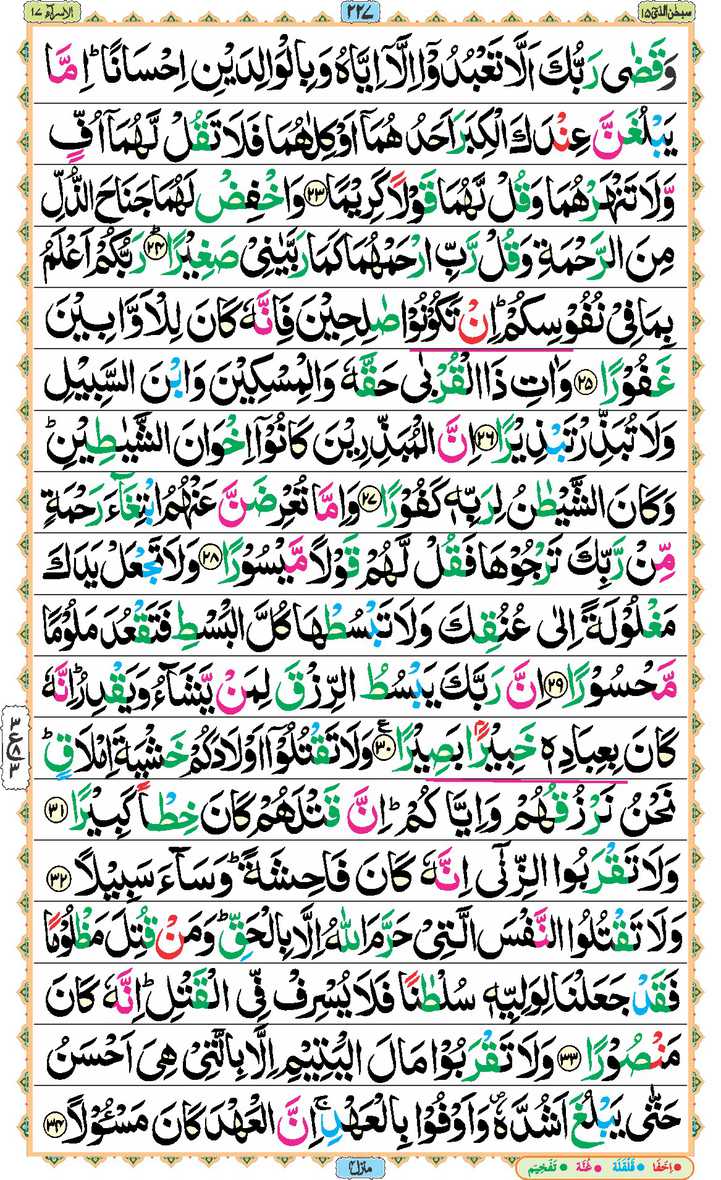 سبحٰن الذی ۱۵
۲۲۷
الاسرآء ۱۷
وَقَضٰى رَبُّكَ اَلَّا تَعْبُدُوْٓا اِلَّآ اِيَّاهُ وَبِالْوَالِدَيْنِ اِحْسَانًا ؕ اِمَّا
يَبْلُغَنَّ عِنْدَكَ الْكِبَرَ اَحَدُهُمَآ اَوْ كِلٰهُمَا فَلَا تَقُلْ لَّهُمَآ اُفٍّ
وَّلَا تَنْهَرْهُمَا وَقُلْ لَّهُمَا قَوْلًا كَرِيْمًا ۲۳ وَاخْفِضْ لَهُمَا جَنَاحَ الذُّلِّ
مِنَ الرَّحْمَةِ وَقُلْ رَّبِّ ارْحَمْهُمَا كَمَا رَبَّيٰنِيْ صَغِيْرًا ؕ ۲۴ رَبُّكُمْ اَعْلَمُ
بِمَا فِيْ نُفُوْسِكُمْ ؕ اِنْ تَكُوْنُوْا صٰلِحِيْنَ فَاِنَّهٗ كَانَ لِلْاَوَّابِيْنَ
غَفُوْرًا ۲۵ وَاٰتِ ذَا الْقُرْبٰى حَقَّهٗ وَالْمِسْكِيْنَ وَابْنَ السَّبِيْلِ
وَلَا تُبَذِّرْ تَبْذِيْرًا ۲۶ اِنَّ الْمُبَذِّرِيْنَ كَانُوْٓا اِخْوَانَ الشَّيٰطِيْنِ ؕ
وَكَانَ الشَّيْطٰنُ لِرَبِّهٖ كَفُوْرًا ۲۷ وَاِمَّا تُعْرِضَنَّ عَنْهُمُ ابْتِغَآءَ رَحْمَةٍ
مِّنْ رَّبِّكَ تَرْجُوْهَا فَقُلْ لَّهُمْ قَوْلًا مَّيْسُوْرًا ۲۸ وَلَا تَجْعَلْ يَدَكَ
مَغْلُوْلَةً اِلٰى عُنُقِكَ وَلَا تَبْسُطْهَا كُلَّ الْبَسْطِ فَتَقْعُدَ مَلُوْمًا
مَّحْسُوْرًا ۲۹ اِنَّ رَبَّكَ يَبْسُطُ الرِّزْقَ لِمَنْ يَّشَآءُ وَيَقْدِرُ ؕ اِنَّهٗ
كَانَ بِعِبَادِهٖ خَبِيْرًۢا بَصِيْرًا ۳۰ ع وَلَا تَقْتُلُوْٓا اَوْلَادَكُمْ خَشْيَةَ اِمْلَاقٍ ؕ
نَحْنُ نَرْزُقُهُمْ وَاِيَّاكُمْ ؕ اِنَّ قَتْلَهُمْ كَانَ خِطْاً كَبِيْرًا ۳۱
وَلَا تَقْرَبُوا الزِّنٰٓى اِنَّهٗ كَانَ فَاحِشَةً ؕ وَسَآءَ سَبِيْلًا ۳۲
وَلَا تَقْتُلُوا النَّفْسَ الَّتِيْ حَرَّمَ اللّٰهُ اِلَّا بِالْحَقِّ ؕ وَمَنْ قُتِلَ مَظْلُوْمًا
فَقَدْ جَعَلْنَا لِوَلِيِّهٖ سُلْطٰنًا فَلَا يُسْرِفْ فِّي الْقَتْلِ ؕ اِنَّهٗ كَانَ
مَنْصُوْرًا ۳۳ وَلَا تَقْرَبُوْا مَالَ الْيَتِيْمِ اِلَّا بِالَّتِيْ هِيَ اَحْسَنُ
حَتّٰى يَبْلُغَ اَشُدَّهٗ ۠ وَاَوْفُوْا بِالْعَهْدِ ۚ اِنَّ الْعَهْدَ كَانَ مَسْـُٔوْلًا ۳۴
منزل ۴
اِخْفَا قَلْقَلَة غُنَّة تَفْخِيْم